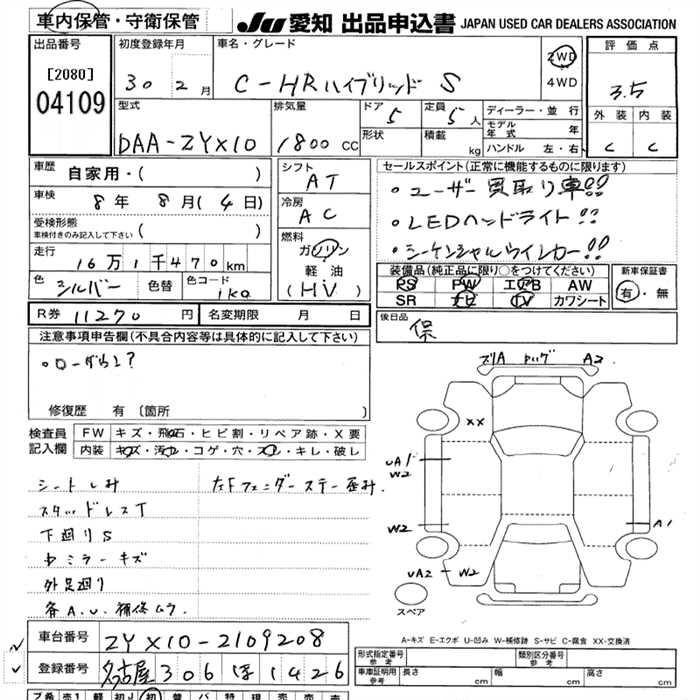 車内保管・守衛保管
JU 愛知 出品申込書 JAPAN USED CAR DEALERS ASSOCIATION
出品番号
[2080]
04109
初度登録年月
30 2月
車名・グレード
C-HRハイブリッド S
2WD
4WD
評価点
3.5
外装 内装
C C
型式
DAA-ZYX10
排気量
1800 CC
ドア
5
形状
定員
5人
積載
kg
ディーラー・並行
モデル年式 年
ハンドル 左・右
車歴 自家用・( )
車検 8年 8月(4日)
受検形態
車検付きのみ記入して下さい ( )
走行 16万1千470km
色 シルバー 色替 色コード 1K0
シフト
AT
冷房
AC
燃料
ガソリン
軽油
(HV)
セールスポイント(正常に機能するものに限ります)
・ユーザー買取り車!!
・LEDヘッドライト!!
・シーケンシャルウインカー!!
装備品(純正品に限り○をつけてください)
PS PW エアB AW
SR ナビ TV カワシート
新車保証書
有・無
R券 11270円
名変期限 月 日
後日品
保
注意事項申告欄(不具合内容等は具体的に記入して下さい)
・ローダウン?
修復歴 有 〔箇所 〕
検査員記入欄
FW キズ・飛石・ヒビ割・リペア跡・X要
内装 キズ・汚れ・コゲ・穴・スレ・キレ・破レ
シートしみ
スタッドレスT
下廻りS
ヰミラーキズ
外足廻り
各A.U.補修ムラ.
左Fフェンダーステー歪み.
A2
XX
UA1
W2
W2
A1
UA2 W2
スペア
A-キズ E-エクボ U-凹み W-補修跡 S-サビ C-腐食 XX-交換済
車台番号 ZYX10-2109208
登録番号 名古屋 306 ほ 1426
形式指定番号
参考
類別区分番号
参考
車両証明用
参考
長さ cm 幅 cm 高さ cm